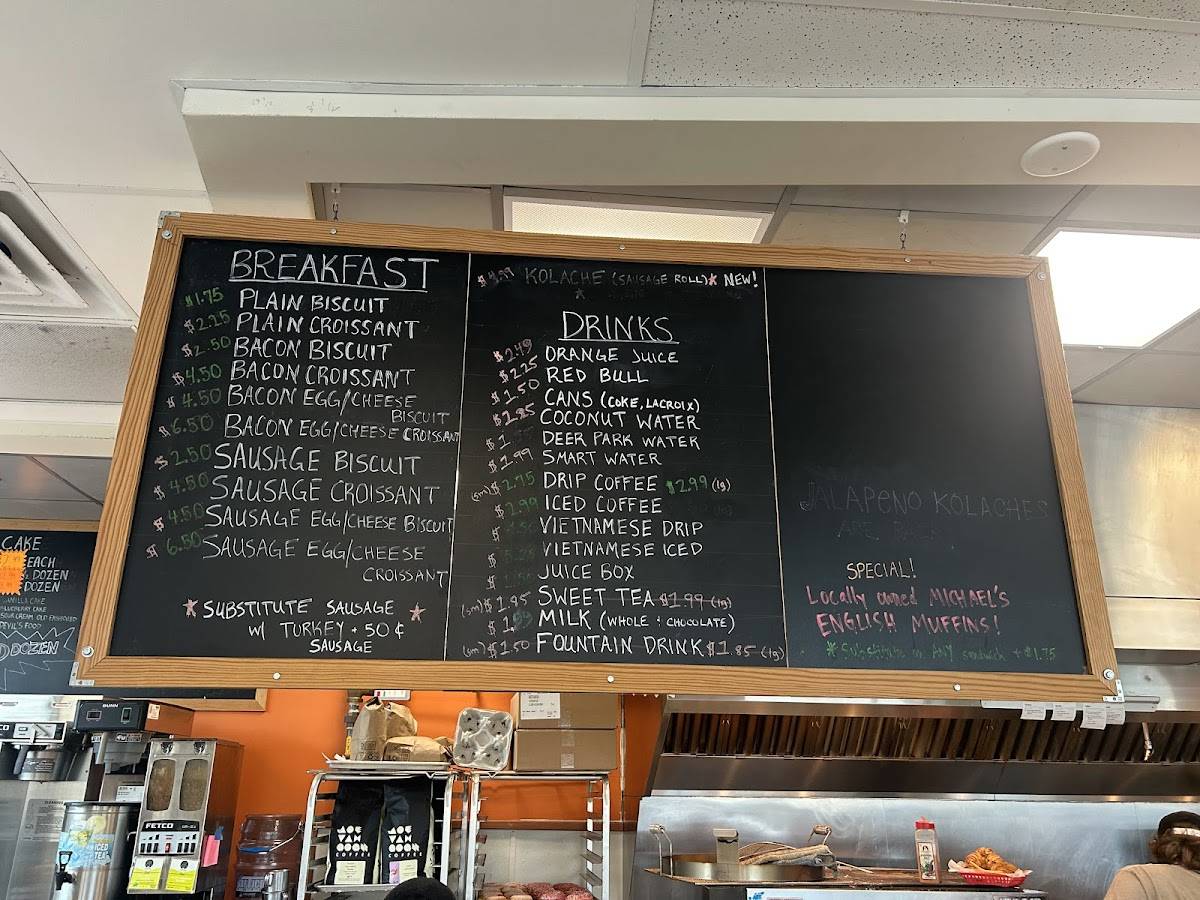 BREAKFAST
$1.75 PLAIN BISCUIT
$2.25 PLAIN CROISSANT
$2.50 BACON BISCUIT
$4.50 BACON CROISSANT
$4.50 BACON EGG/CHEESE
BISCUIT
$6.50 BACON EGG/CHEESE CROISSANT
$2.50 SAUSAGE BISCUIT
$4.50 SAUSAGE CROISSANT
$4.50 SAUSAGE EGG/CHEESE BISCUIT
$6.50 SAUSAGE EGG/CHEESE
CROISSANT
*SUBSTITUTE SAUSAGE *
W/ TURKEY + 50¢
SAUSAGE
KOLACHE (SAUSAGE ROLL)* NEW!
DRINKS
$2.49 ORANGE JUICE
$2.25 RED BULL
$1.50 CANS (COKE, LACROIX)
$2.85 COCONUT WATER
DEER PARK WATER
$1.99 SMART WATER
(sm) $2.75 DRIP COFFEE $2.99 (lg)
$2.99 ICED COFFEE
VIETNAMESE DRIP
VIETNAMESE ICED
JUICE BOX
(sm) $1.85 SWEET TEA $1.99 (lg)
MILK (WHOLE + CHOCOLATE)
(sm) $1.50 FOUNTAIN DRINK $1.85 (lg)
JALAPENO KOLACHES
ARE BACK!
SPECIAL!
Locally owned MICHAEL'S
ENGLISH MUFFINS!
*Substitute on ANY sandwich + $1.75
CAKE
EACH
DOZEN
DOZEN
VANILLA CAKE
BLUEBERRY CAKE
SOUR CREAM OLD FASHIONED
DEVIL'S FOOD
DOZEN
BUNN
FETCO
ICED
TEA
MOE
VAN
MOON
COFFEE
MOE
VAN
MOON
COFFEE